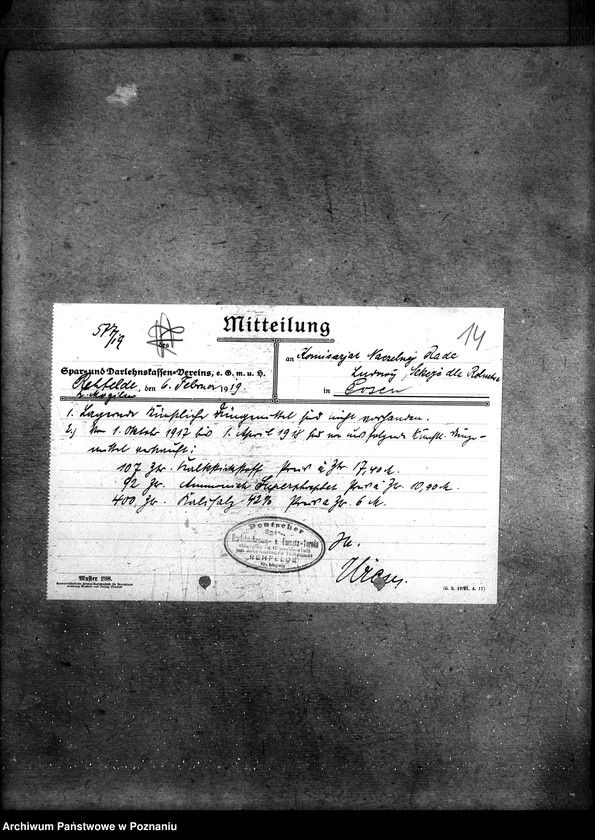 577/19
14
Mitteilung
des
Spar- und Darlehnskassen-Vereins, e. G. m. u. H.
Rehfelde, den 6. Februar 1919.
an Komisarjat Naczelnej Rade
Ludowej, Sekcja dle Rolnictwa
in Posen
1. Lagernde künstliche Düngemittel sind nicht vorhanden.
2.) Vom 1. Oktober 1917 bis 1. April 1918 sind von uns folgende künstl. Dünge-
mittel verkauft:
107 Ztr. Kalkstickstoff Preis à Ztr. 17,40 M.
92 Ztr. Ammoniak Superphosphat Preis à Ztr. 10,90 M.
400 Ztr. Kalisalz 42% Preis à Ztr. 6 M.
Deutscher
Spar-
REHFELDE
Muster 298.
(G. 3. 10/21. A. 17)
Archiwum Państwowe w Poznaniu